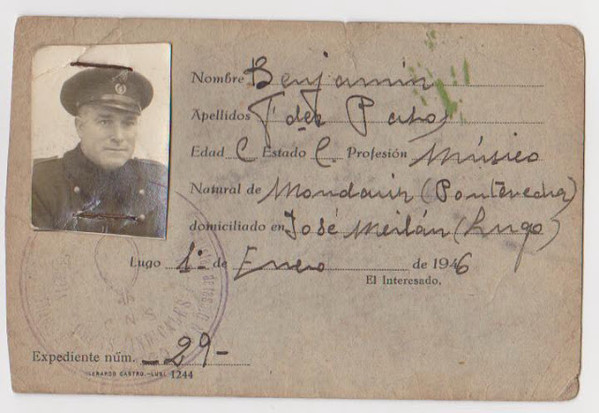 Nombre Benjamín
Apellidos Fdez Pato
Edad C Estado C. Profesión Músico
Natural de Mondariz (Pontevedra)
domiciliado en José Meilán (Lugo)
Lugo 1º de Enero de 1946
El Interesado,
Expediente núm. -29-
CASTRO.—LUGO 1244